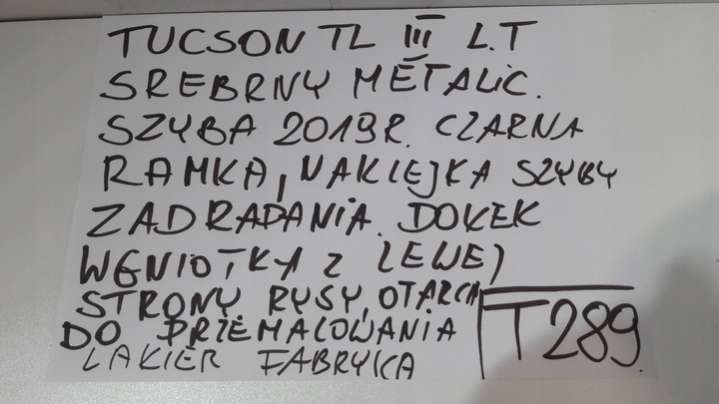 TUCSON TL III L.T
SREBRNY METALIC.
SZYBA 2019R. CZARNA
RAMKA, NAKLEJKA SZYBY
ZADRAPANIA. DOŁEK
WGNIOTKA Z LEWEJ
STRONY, RYSY, OTARCIA
DO PRZEMALOWANIA
LAKIER FABRYKA
T289